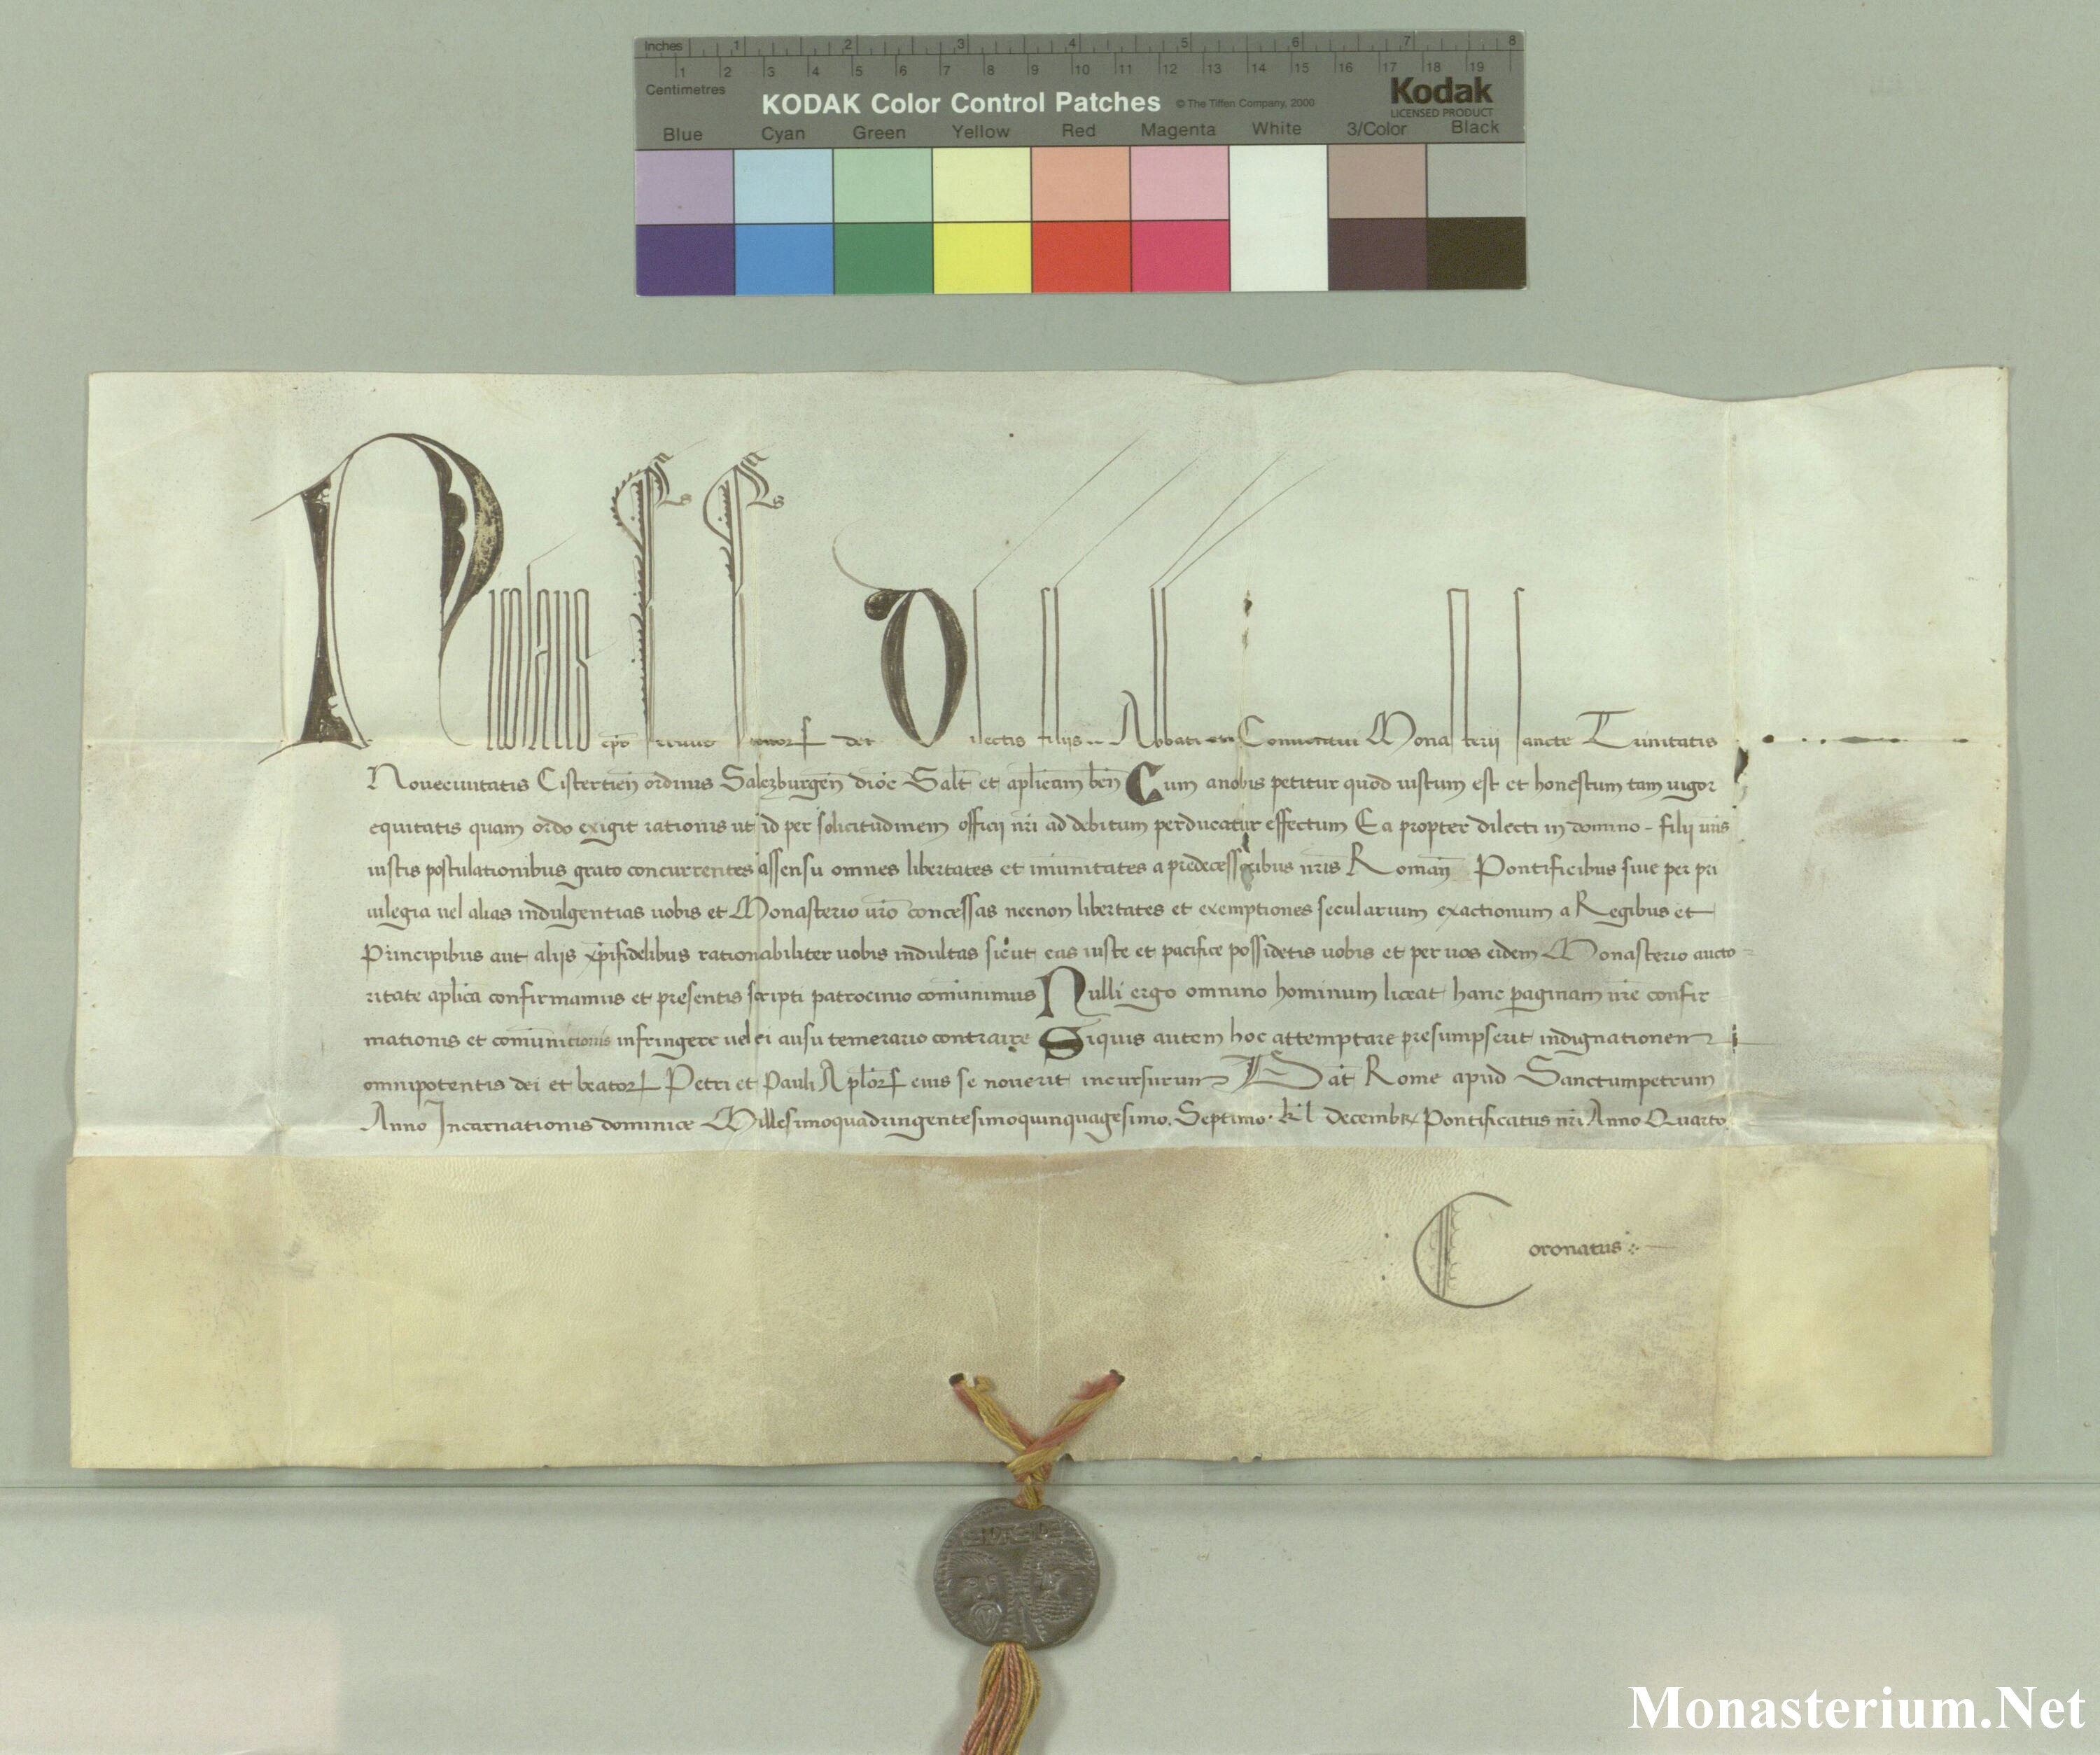 Inches 1 2 3 4 5 6 7 8
1 2 3 4 5 6 7 8 9 10 11 12 13 14 15 16 17 18 19
Centimetres
KODAK Color Control Patches © The Tiffen Company, 2000 Kodak
LICENSED PRODUCT
Blue Cyan Green Yellow Red Magenta White 3/Color Black
Nicolaus ep̄s servus servorꝝ dei Dilectis filiis .. Abbati et Conventui Monasterii sancte Trinitatis
Novecivitatis Cistercieñ ordinis Salczburgeñ dioc̄ Salt̄ et aplicam beñ Cum a nobis petitur quod iustum est et honestum tam vigor
equitatis quam ordo exigit rationis ut id per solicitudinem officii nr̄i ad debitum perducatur effectum Ea propter dilecti in domino filii vr̄is
iustis postulationibus grato concurrentes assensu omnes libertates et imunitates a predecessoribus nr̄is Romañ Pontificibus sive per pri
vilegia vel alias indulgentias vobis et Monasterio vr̄o concessas necnon libertates et exemptiones secularium exactionum a Regibus et
Principibus aut aliis xp̄ifidelibus rationabiliter vobis indultas sicut eas iuste et pacifice possidetis vobis et per vos eidem Monasterio aucto
ritate aplica confirmamus et presentis scripti patrocinio comunimus Nulli ergo omnino hominum liceat hanc paginam nr̄e confir
mationis et comunitionis infringere vel ei ausu temerario contraire Siquis autem hoc attemptare presumpserit indignationem
omnipotentis dei et beatorꝝ Petri et Pauli Aplorꝝ eius se noverit incursurum Dat̄ Rome apud Sanctumpetrum
Anno Incarnationis dominice Millesimoquadringentesimoquinquagesimo. Septimo. kl̄ decembr̄ Pontificatus nr̄i Anno Quarto
Coronatus
Monasterium.Net